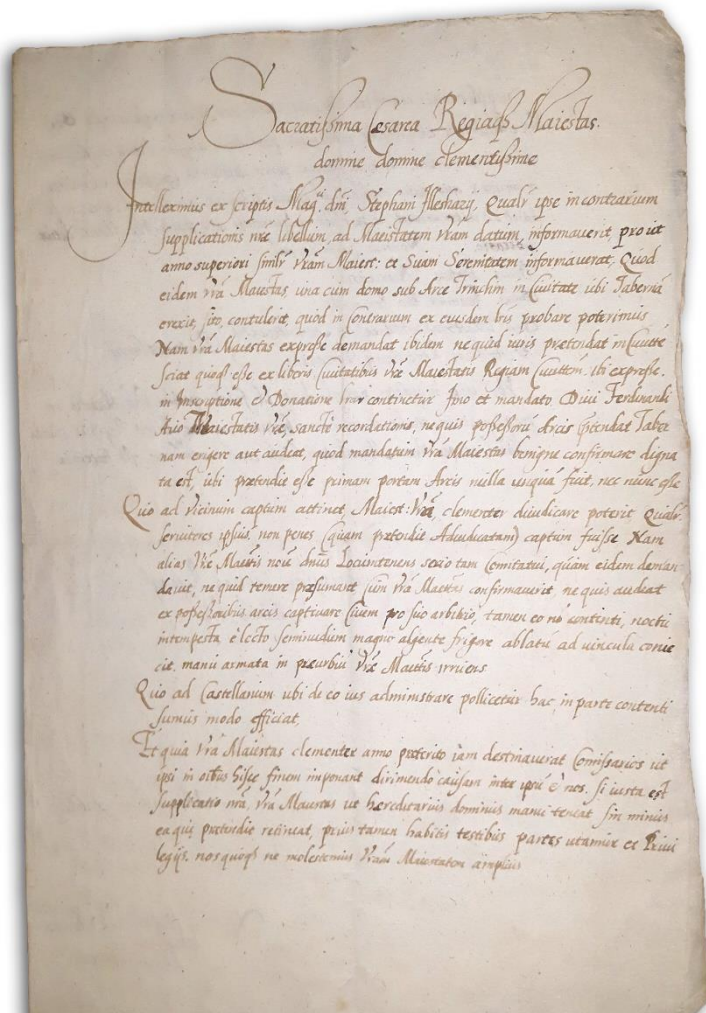 Sacratissima Cesarea Regiaqß Maiestas.
domine domine clementissime
Intelleximus ex scriptis Mag.ci dni, Stephani Illeshazÿ, Qualr ipse in contrarium
supplicationis nre libellum, ad Maiestatem Vram datum, informaverit, pro ut
anno superiori similr Vram Maiest: et Suam Serenitatem informaverat, Quod
eidem Vra Maiestas, una cum domo sub Arce Trinchin in Civitate ubi Taberna
erexit, sito, contulerit, quod in Contrarium ex eiusdem lris probare poterimus
Nam Vra Maiestas expresse demandat ibidem ne quid iuris pretendat in Civitte
sciat quoqß esse ex liberis Civitatibus Vre Maiestatis Regiam Civittem. Ibi expresse.
in Inscriptione et Donatione continetur et mandato Divi Ferdinandi
Avio Maiestatis Vre, sancte recordationis, ne quis possessoru Arcis pretendat Taber
nam erigere aut audeat, quod mandatum Vra Maiestas benigne confirmare digna
ta est, ubi pretendit esse primam portam Arcis nulla usqua fuit, nec nunc esse
Quo ad Vicinum captum attinet, Maiest: Vra, clementer diiudicare poterit Qualr
servitores ipsius, non penes (quam pretendit captum fuisse Nam
alias Vre Maiettis dnus Locumtenens serio tam Comitatui, quam eidem deman
davit, ne quid temere presumant Cum Vra Maiestas confirmaverit ne quis audeat
ex possessoribus arcis captivare Civem pro suo arbitrio, tamen eo no contenti, noctu
intempesta, e lecto seminudum magno algente frigore ablatu ad vincula conie
cit, manu armata in Vre Maiettis irruens
Quo ad Castellanum ubi de eo ius administrare pollicetur hac, in parte contenti
sumus modo efficiat
Et quia Vra Maiestas clementer anno preterito iam destinaverat Comissarios ut
ipsi in oibus hisce finem imponant dirimendo causam inter ipsu e nos. Si iusta est
supplicatio nra, Vra Maiestas ut hereditarius dominus manu teneat sin minus
ea que pretendit retineat, prius tamen habitis testibus partes utamur et Privi
legÿs. nos quoqß ne molestemus Vram Maiestatem amplius